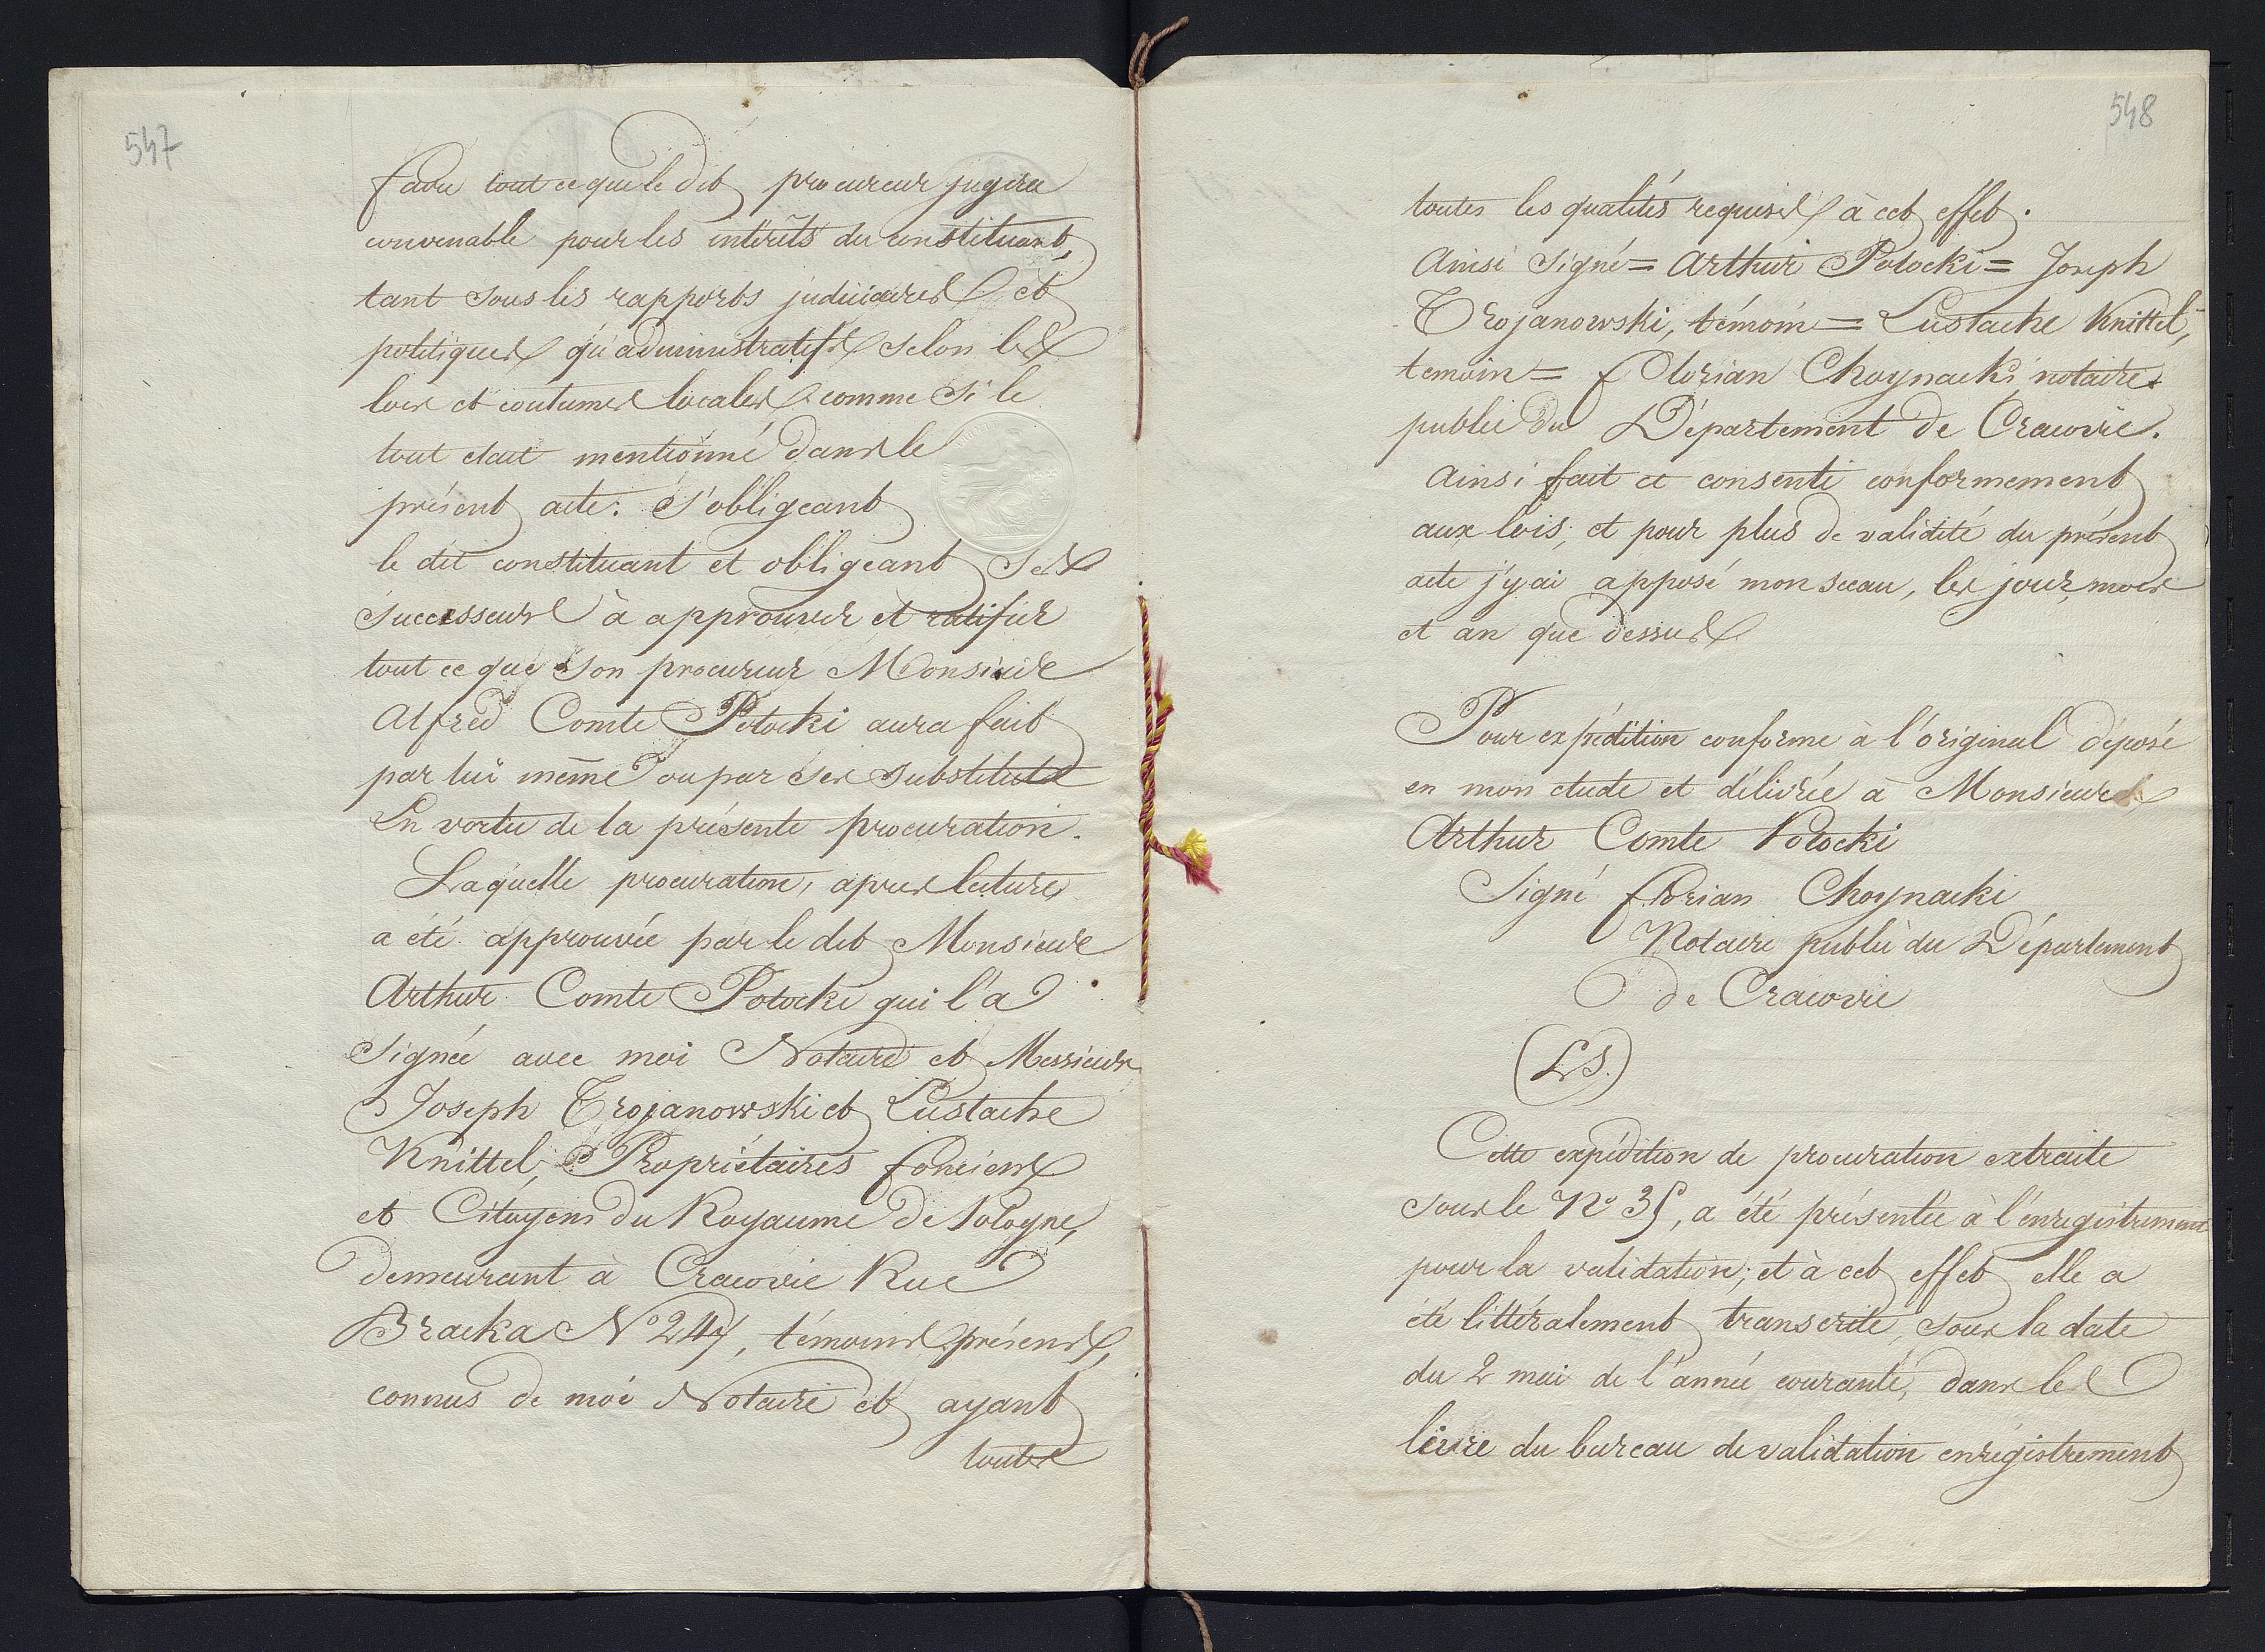 547
faire tout ce que le dit procureur jugera
convenable pour les intérêts du constituant,
tant sous les rapports judiciaires et
politiques qu'administratifs selon les
lois et coutumes locales comme si le
tout etait mentionné dans le
présent acte: s'obligeant
le dit constituant et obligeant ses
successeurs à approuver et ratifier
tout ce que son procureur Monsieur
Alfred Comte Potocki aura fait
par lui même ou par ses substituts
En vertu de la présente procuration.
Laquelle procuration, apres lecture
a été approuvée par le dit Monsieur
Arthur Comte Potocki qui l'a
signée avec moi Notaire et Messieurs
Joseph Trojanowski et Eustache
Knittel, Propriétaires fonciers
et Citoyens du Royaume de Pologne,
demeurant à Cracovie Rue
Bracka N° 247, témoins présens,
connus de moi Notaire et ayant
toutes
548
toutes les qualités requises à cet effet.
Ainsi signé = Arthur Potocki = Joseph
Trojanowski, témoin = Eustache Knittel,
temoin = Florian Choynacki notaire
public du Département de Cracovie.
Ainsi fait et consenti conformement
aux lois; et pour plus de validité du présent
acte j'y ai apposé mon sceau, les jour, mois
et an que dessus
Pour expédition conforme à l'original déposé
en mon etude et délivrée à Monsieur
Arthur Comte Potocki
Signé Florian Choynacki
Notaire public du Département
de Cracovie
(LS.)
Cette expédition de procuration extraite
sous le N° 35, a été présentée à l'enregistrement
pour la validation; et à cet effet elle a
été littéralement transcrite, sous la date
du 2 mai de l'année courante, dans le
livre du bureau de validation enregistrement